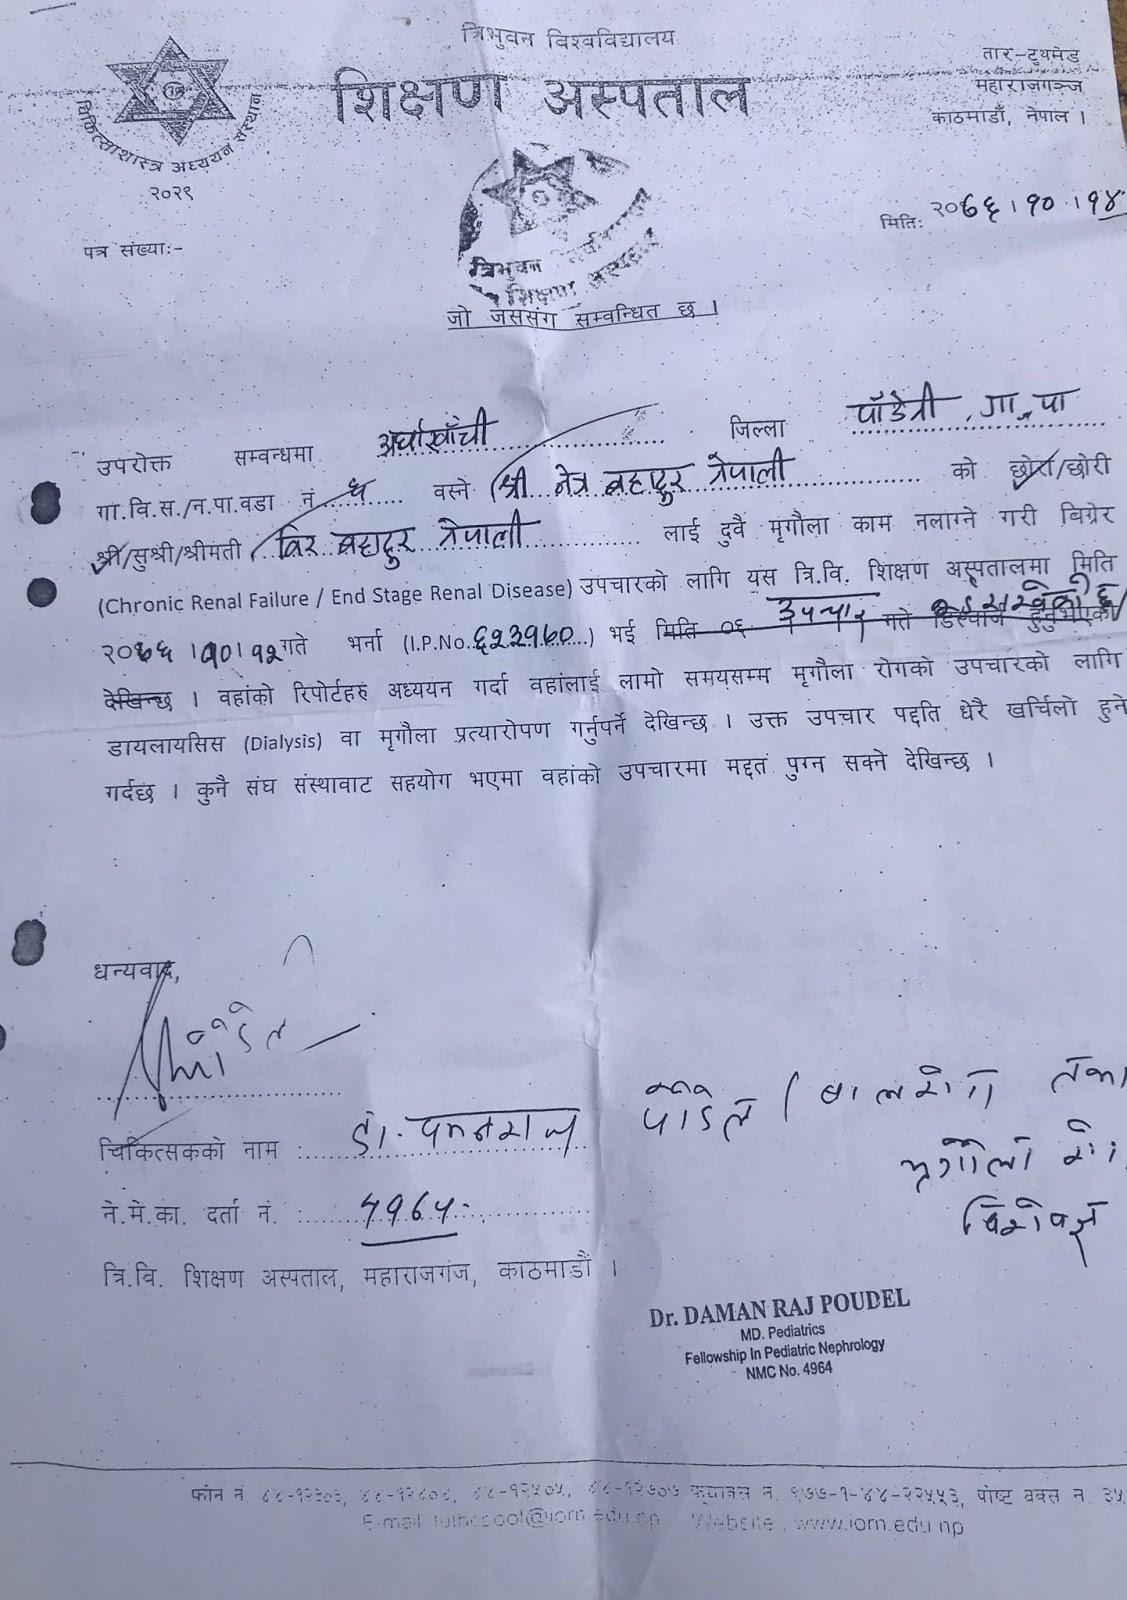 त्रिभुवन विश्वविद्यालय
शिक्षण अस्पताल
तार-टयमेड
महाराजगञ्ज
काठमाडौं, नेपाल ।
चिकित्साशास्त्र अध्ययन संस्थान
२०२९
त्रिभुवन
शिक्षण अस्पताल
मितिः २०७६।१०।१४
पत्र संख्याः-
जो जससंग सम्वन्धित छ ।
उपरोक्त सम्वन्धमा अर्घाखाँची जिल्ला पाँडेनी गा.पा
गा.वि.स./न.पा.वडा नं ५ वस्ने श्री नेत्र बहादुर नेपाली को छोरा/छोरी
श्री/सुश्री/श्रीमती विर बहादुर नेपाली लाई दुवै मृगौला काम नलाग्ने गरी बिग्रेर
(Chronic Renal Failure / End Stage Renal Disease) उपचारको लागि यस त्रि.वि. शिक्षण अस्पतालमा मिति
२०७६।१०।१२ गते भर्ना (I.P.No. ६२३९६०) भई मिति ०६ उपचार गते डिस्चार्ज हुनुभएको
देखिन्छ । वहांको रिपोर्टहरु अध्ययन गर्दा वहांलाई लामो समयसम्म मृगौला रोगको उपचारको लागि
डायलायसिस (Dialysis) वा मृगौला प्रत्यारोपण गर्नुपर्ने देखिन्छ । उक्त उपचार पद्दति धेरै खर्चिलो हुने
गर्दछ । कुनै संघ संस्थावाट सहयोग भएमा वहांको उपचारमा मद्दत पुग्न सक्ने देखिन्छ ।
धन्यवाद,
चिकित्सकको नाम : डा. दमनराज पौडेल (बालरोग तथा
मृगौला रोग
विशेषज्ञ
ने.मे.का. दर्ता नं. : ४९६४
त्रि.वि. शिक्षण अस्पताल, महाराजगंज, काठमाडौं ।
Dr. DAMAN RAJ POUDEL
MD. Pediatrics
Fellowship In Pediatric Nephrology
NMC No. 4964
फोन नं ४४-१२३०३, ४४-१२४०४, ४४-१२५०५, ४४-१२७०७ फ्याक्स नं. ९७७-१-४४-२२५५३, पोष्ट वक्स न. ३५
E-mail Website : www.iom.edu.np